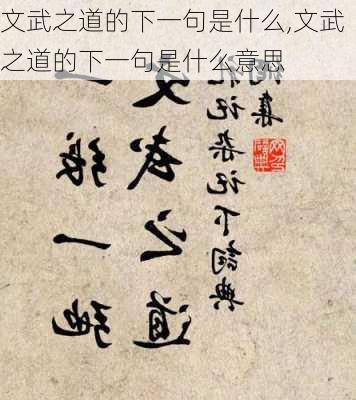 文武之道的下一句是什么,文武
之道的下一句是什么意思
集
礼记杂记下词典
文武之道
一张一弛